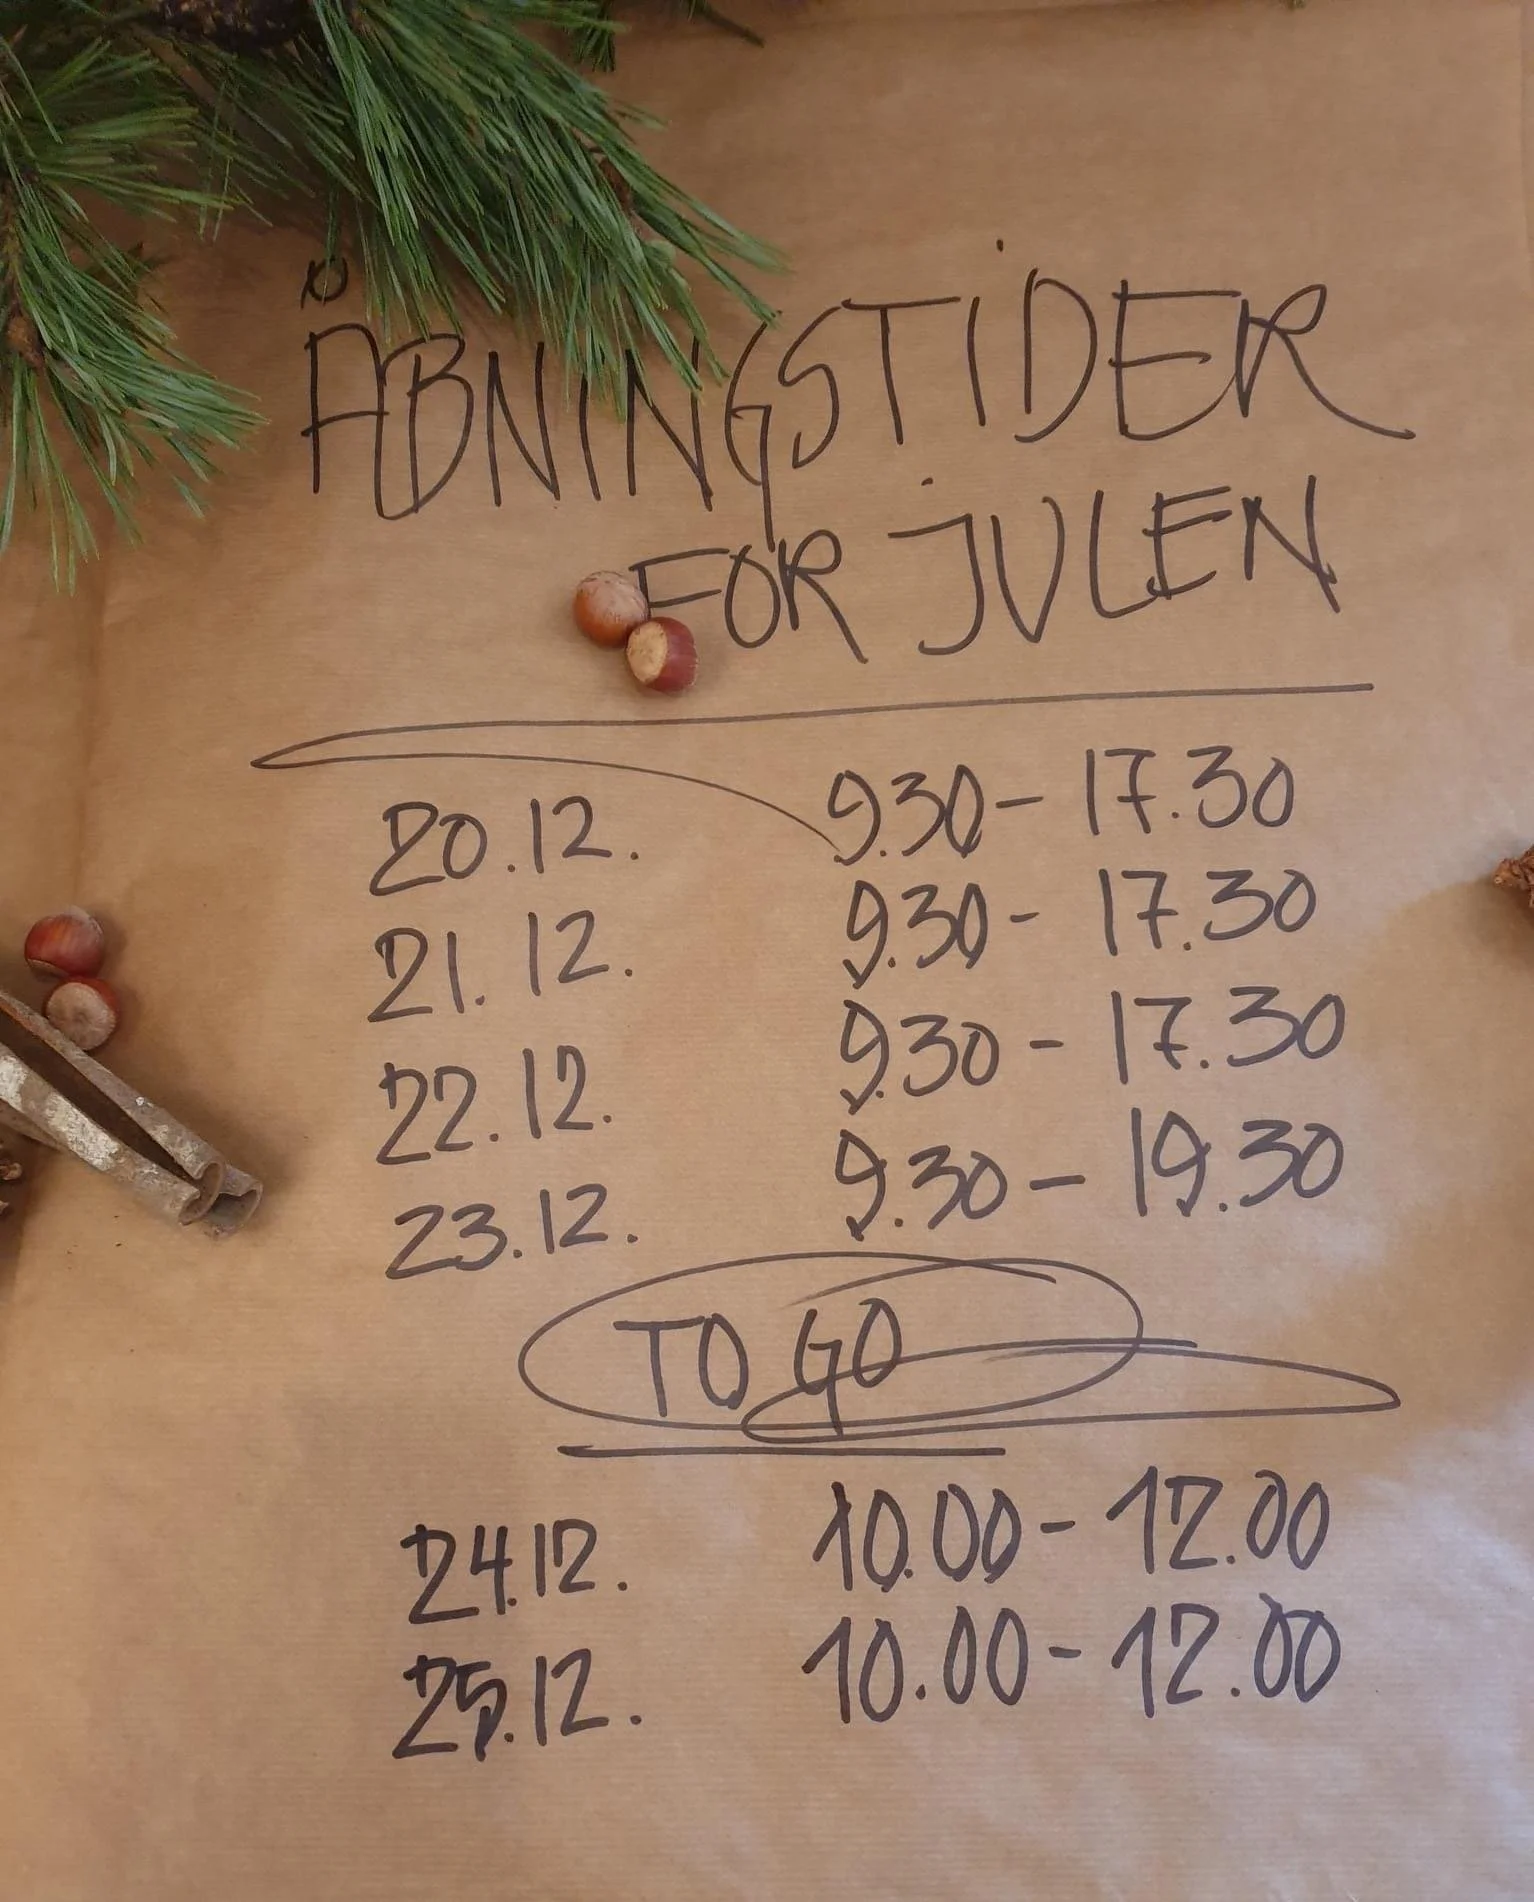 ÅBNINGSTIDER
FOR JULEN
20.12. 9.30 - 17.30
21.12. 9.30 - 17.30
22.12. 9.30 - 17.30
23.12. 9.30 - 19.30
TO GO
24.12. 10.00 - 12.00
25.12. 10.00 - 12.00